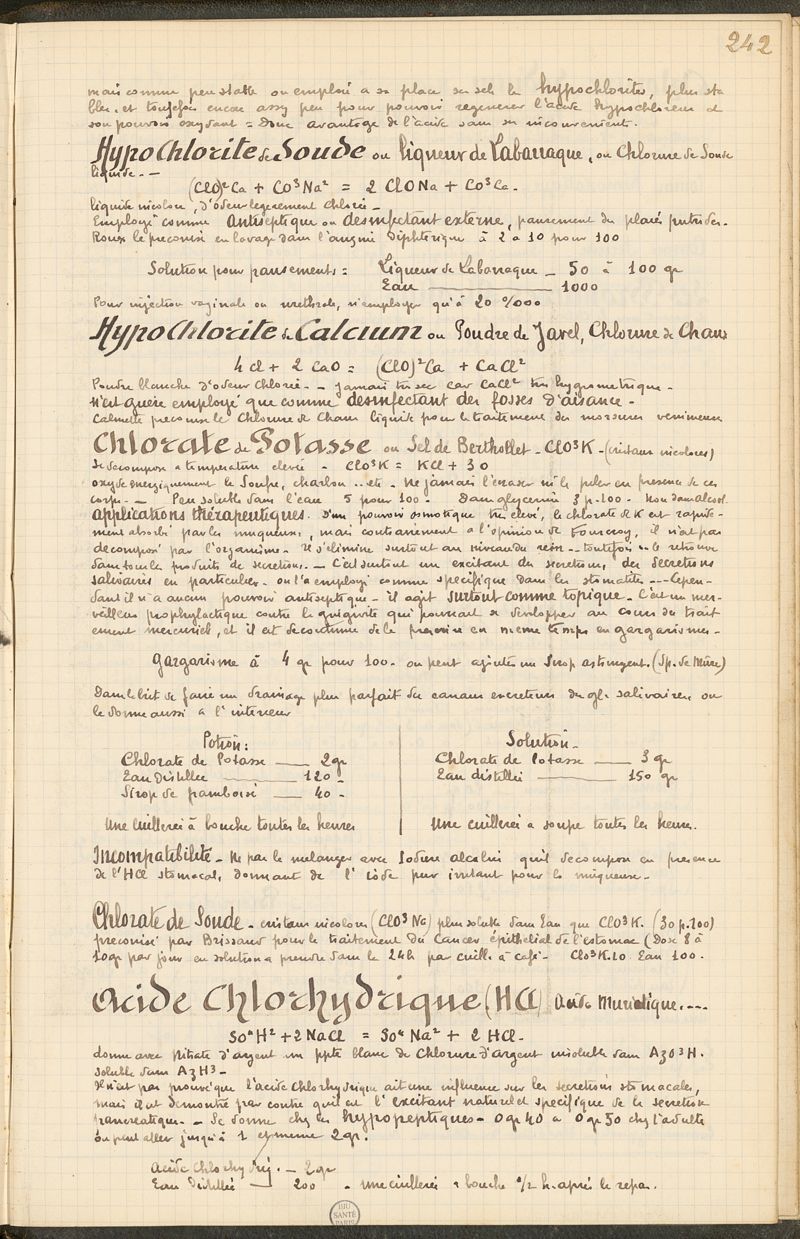 242
mais comme peu stable on emploie a sa place ses sels les hypochlorites, plus sta
bles et toutefois encore assez peu pour pouvoir regenerer l'acide hypochloreux et
son pouvoir oxydant = Donc avantage de l'acide sans ses inconvenients.
HypoChlorite de Soude ou liqueur de Labarraque, ou Chlorure de Soude
liquide. -
(ClO)²Ca + CO³Na² = 2 ClONa + CO³Ca.
liquide incolore, d'odeur legerement chlorée -
Employé comme Antiseptique ou desinfectant externe, pansement des plaies putrides.
Roux le preconise en lavage dans l'angine diphterique à 2 à 10 pour 100
Solution pour pansements : Liqueur de Labarraque - 50 à 100 gr
Eau 1000
Pour injection vaginale ou urethrale, n'employer qu'à 20 %00
HypoChlorite de Calcium ou Poudre de Javel, Chlorure de Chaux
4 Cl + 2 CaO = (ClO)²Ca + CaCl²
Poudre blanche d'odeur chlorée - jamais tres sec car CaCl² tres hygrometrique -
n'est guère employé que comme desinfectant des fosses d'aisance -
Calmette preconise le Chlorure de Chaux liquide pour le traitement des morsures venimeuses
Chlorate de Potasse ou Sel de Berthollet - ClO³K - (cristaux incolores)
Se decompose a temperature elevée - ClO³K = KCl + 3O
oxyde energiquement le Soufre, charbon .. etc - Ne jamais l'ecraser ni le piler en presence de ces
corps. - Peu soluble dans l'eau 5 pour 100 - Dans glycerine 3 p. 100 - Non dans alcool.
applications thérapeutiques. D'un pouvoir osmotique tres elevé, le chlorate de K est rapide-
ment absorbé par les muqueuses, mais contrairement a l'opinion de Fourcroy, il n'est pas
decomposé par l'organisme. Il s'elimine surtout au niveau du rein - toutefois on le retrouve
dans tous les produits de secretion. - C'est surtout un excitant des secretions, des secretions
salivaires en particulier - on l'a employé comme specifique dans les stomatites --- Cepen-
dant il n'a aucun pouvoir antiseptique - il agit surtout comme topique - C'est un mer-
veilleux prophylactique contre la gingivite qui pourrait se developper au cours du trait
ement mercuriel, et il est de coutume de le prescrire en meme temps en gargarismes -
Gargarisme à 4 gr pour 100 - on peut ajouter un Sirop astringent. (Sp. de Mûre)
Dans le but de faire un drainage plus parfait des canaux excreteurs des gl. salivaires, on
le donne aussi a l'interieur
Potion :
Chlorate de Potasse 2 gr
Eau distillée 120 -
Sirop de framboise 40 -
Une cuillerée à bouche toutes les heures
Solution -
Chlorate de Potasse 3 gr
Eau distillée 150 gr
Une cuillerée a soupe toutes les heures.
Incompatibilité - Ne pas le melanger avec Iodures alcalins qu'il decompose en presence
de l'HCl stomacal, donnant de l'iode pur irritant pour la muqueuse -
Chlorate de Soude - cristaux incolores (ClO³Na) plus soluble dans Eau que ClO³K. (30 p. 100)
preconisé par Brissaud pour le traitement du Cancer épithelial de l'estomac (Dose 8 à
10gr par jour en solution a prendre dans les 24h par cuill. a café - ClO³K 10 Eau 100.
Acide Chlorhydrique (HCl) Acide Muriatique. ---
SO⁴H² + 2NaCl = SO⁴Na² + 2 HCl -
donne avec Nitrate d'argent un ppté blanc de Chlorure d'argent insoluble dans AzO³H.
soluble dans AzH³ -
Il n'est pas prouvé que l'acide chlorhydrique ait une influence sur les secretions stomacales,
mais il est demontré par contre qu'il est l'excitant naturel et specifique de la secretion
pancreatique. - Se donne chez les hypopeptiques - 0gr40 a 0gr50 chez l'adulte
on peut aller jusqu'à 1 et meme 2gr.
Acide Chlorhydriq. - 2gr
Eau Distillée 200 - une cuillerée a bouche ½ h. après le repas.
BIU
SANTÉ
PARIS